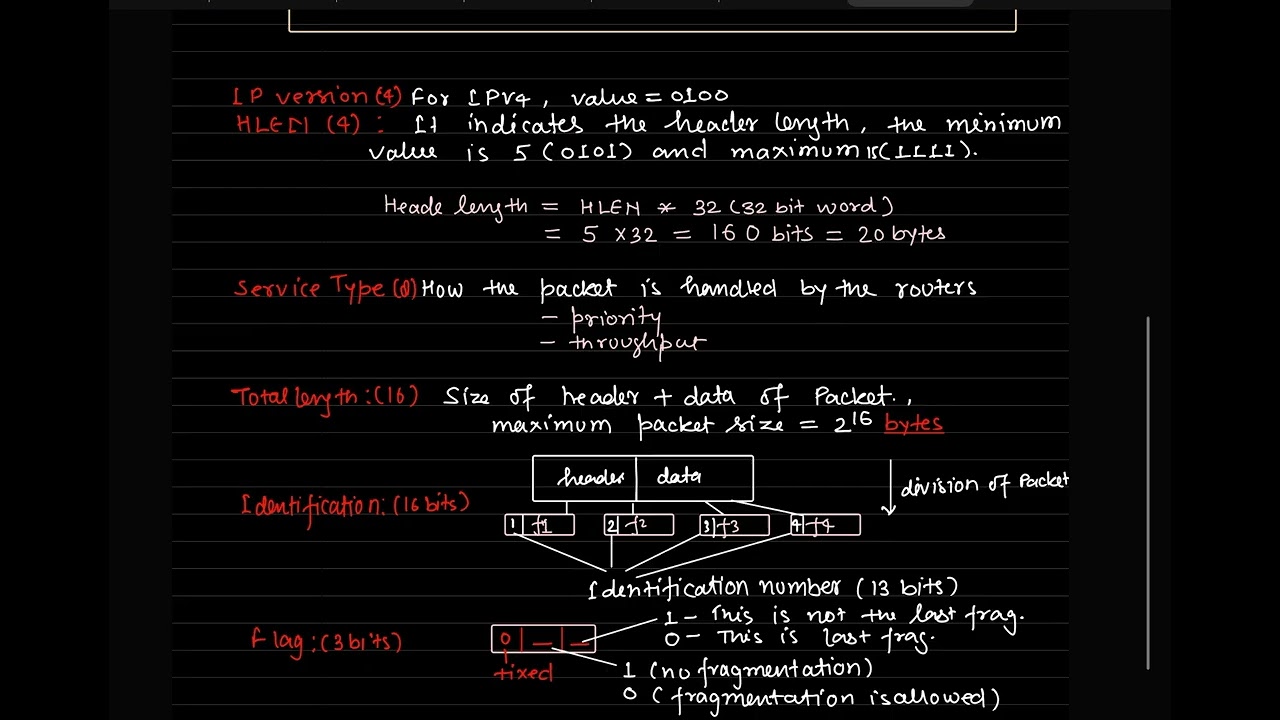 IP version (4) For IPV4, value = 0100
HLEN (4) : It indicates the header length, the minimum
value is 5 (0101) and maximum is (1111).
Heade length = HLEN * 32 (32 bit word)
= 5 X32 = 160 bits = 20 bytes
Service Type (8) How the packet is handled by the routers
- priority
- throughput
Total length : (16) Size of header + data of Packet.,
maximum packet size = 2^16 bytes
header data
division of Packet
Identification: (16 bits)
1 f1 2 f2 3 f3 4 f4
Identification number (13 bits)
1 - This is not the last frag.
Flag : (3 bits) 0 _ _ 0 - This is last frag.
fixed 1 (no fragmentation)
0 ( fragmentation is allowed)